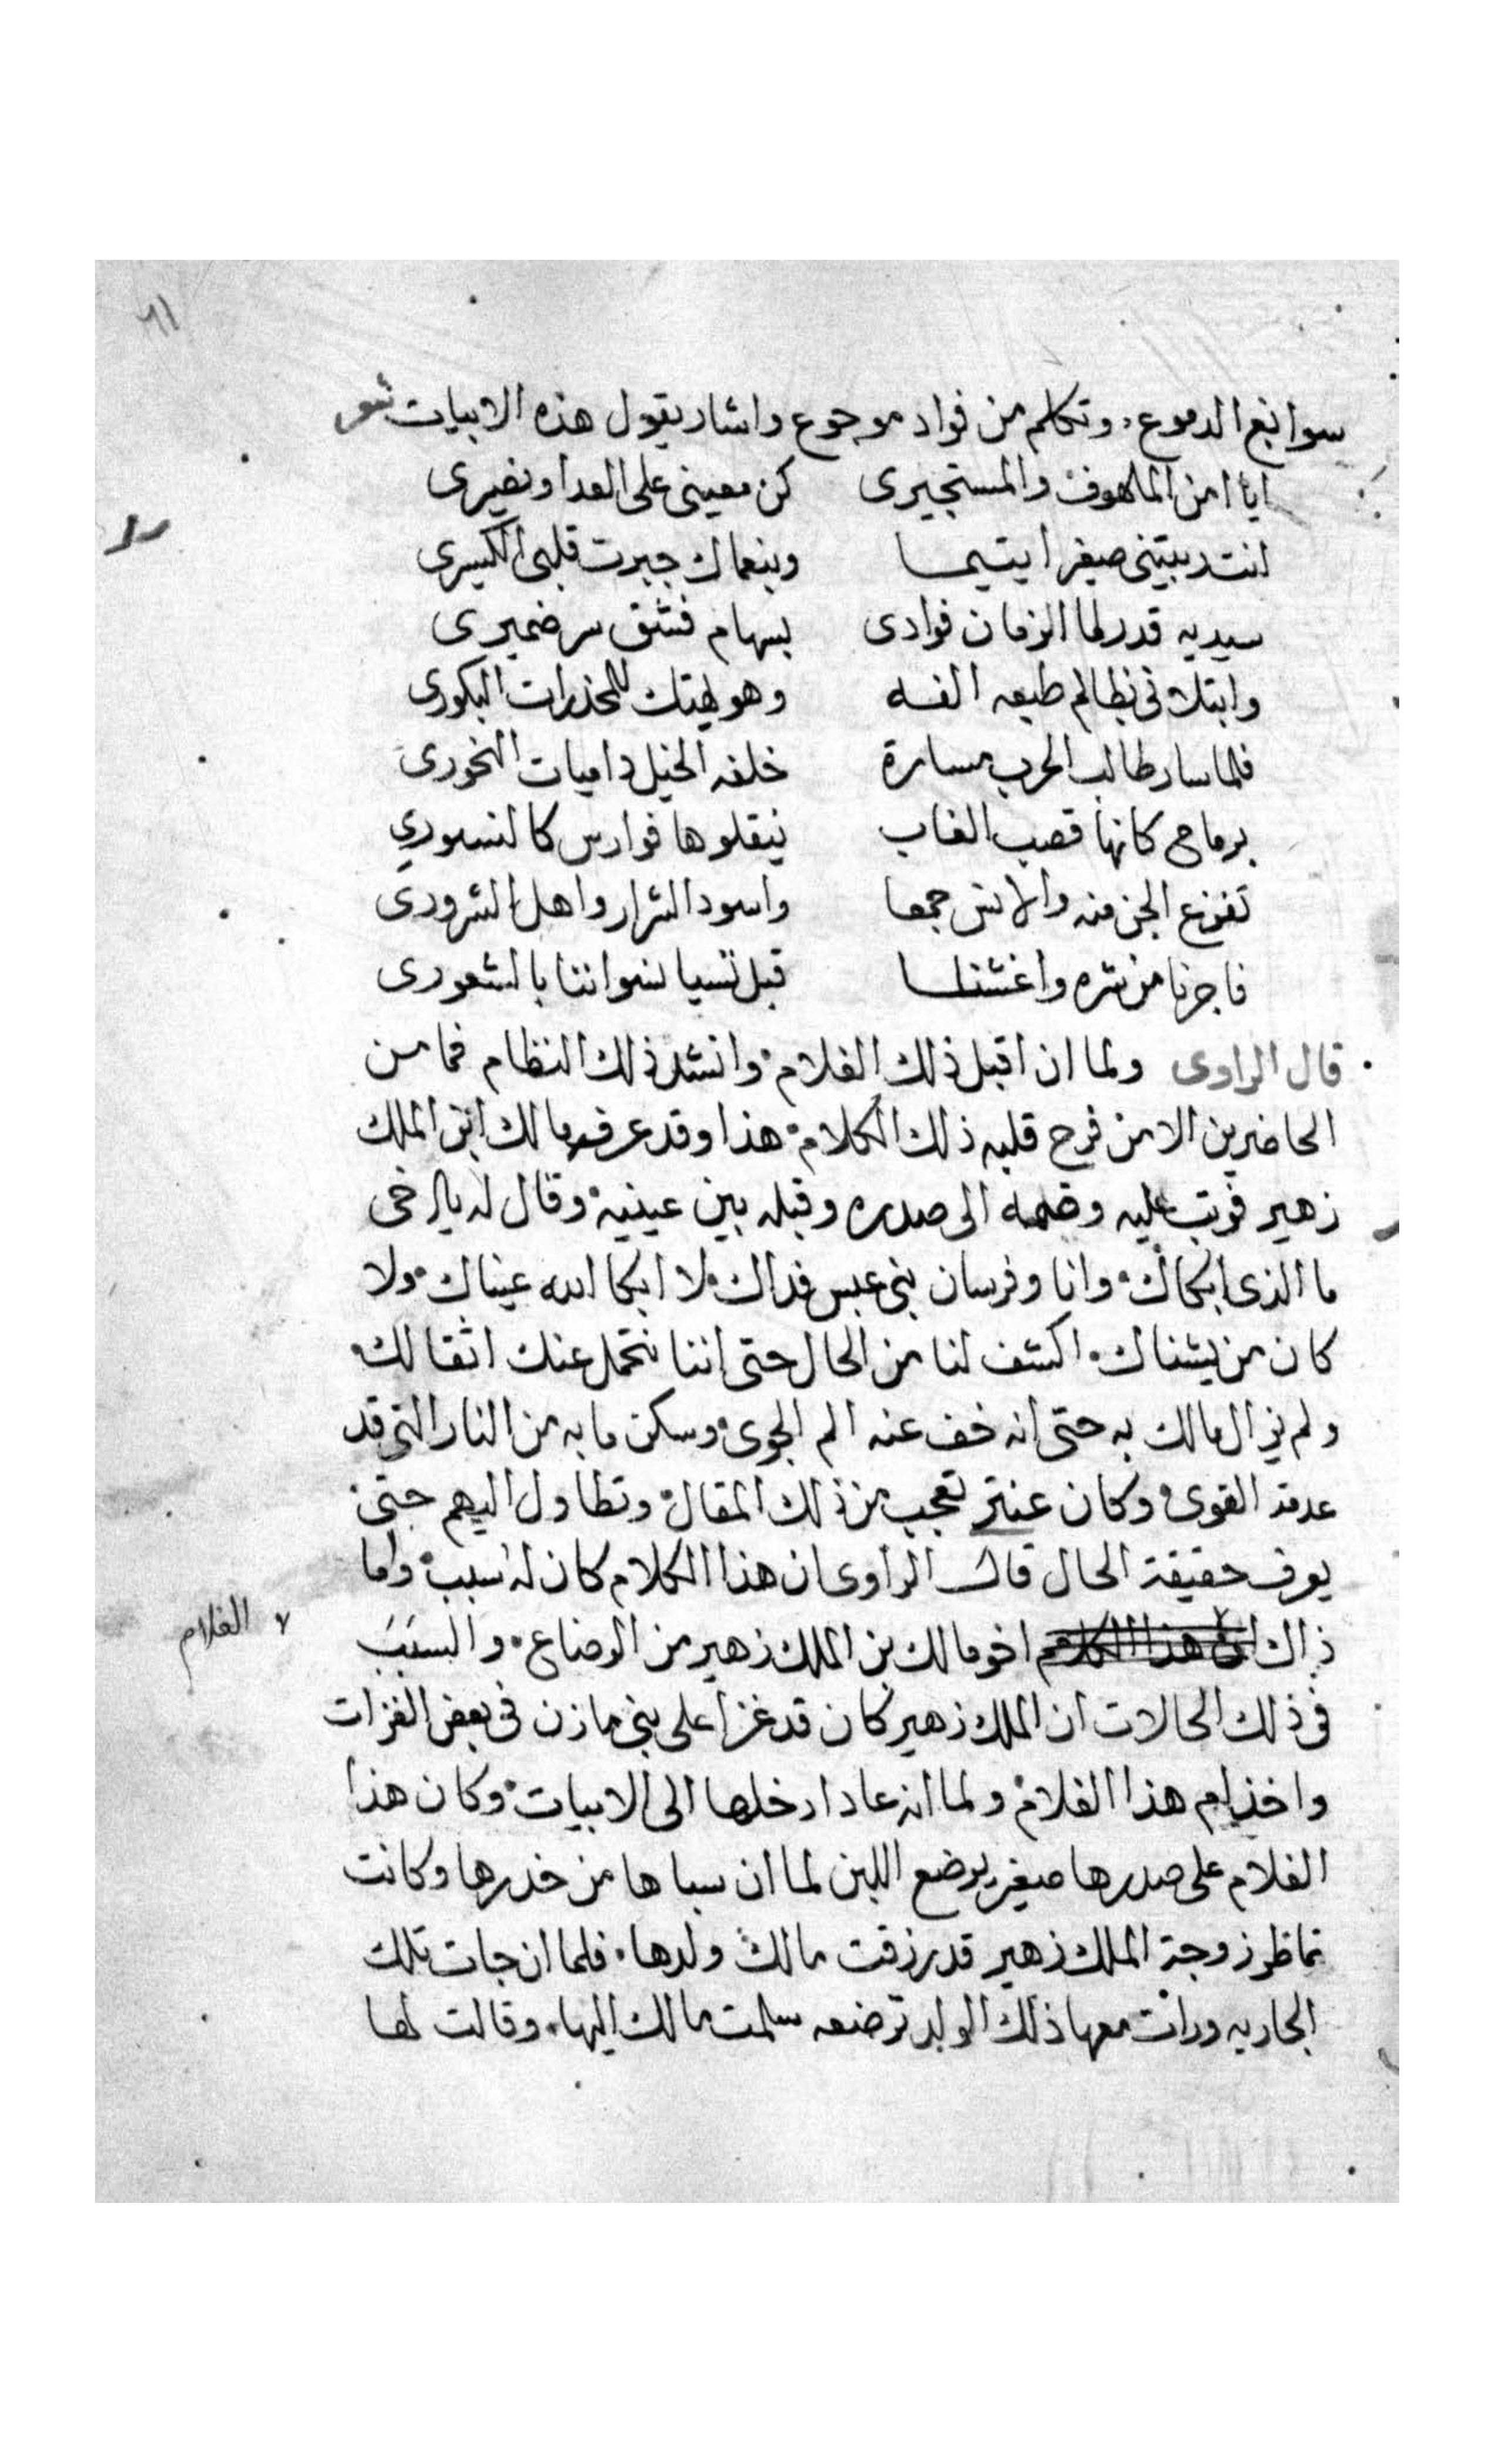 ٦١
سوابع الدموع، وتكلم من فواد موجوع واشار يقول هذه الابيات شعر
ايا امن الملهوف والمستجيرى كن معينى على العدا ونصيرى
انت ربيتنى صغيرا يتيما وبنعماك جبرت قلبى الكسيرى
سيديه قد رما الزمان فوادى بسهام فشق سر ضميرى
وابتلانى بظالم طبعه الفسه وهو لهتك للمخذرات البكورى
فلما سار طالب الحرب مسارة خلفه الخيل داميات النحورى
برماح كانها قصب الغاب نيقلوها فوارس كالنسوري
تفزع الجن منه والانس جمعا واسود الشرار واهل الشرورى
فاجرنا من شره واغثنا قبل تسبا نسواننا بالشعورى
قال الراوى ولما ان اقبل ذلك الغلام، وانشد ذلك النظام فما من
الحاضرين الا من فرح قلبه ذلك الكلام، هذا وقد عرفه مالك ابن الملك
زهير فوتب عليه وضمه الى صدره وقبله بين عينيه، وقال له يا اخى
ما الذى ابكاك، وانا وفرسان بنى عبس فداك، لا ابكا الله عيناك، ولا
كان من يشناك، اكشف لنا من الحال حتى اننا نتحمل عنك اثقالك،
ولم يزال مالك به حتى انه خف عنه الم الجوى، وسكن ما به من النار التى قد
عدمته القوى، وكان عنتر تعجب من ذلك المقال، وتطاول اليهم حتى
يعرف حقيقة الحال قال الراوى ان هذا الكلام كان له سبب، واما
ذاك الغلام اخو مالك بن الملك زهير من الرضاع، والسبب
فى ذلك الحالات ان الملك زهير كان قد غزا على بنى مازن فى بعض الغزات
واخذ ام هذا الغلام، ولما انه عاد ادخلها الى الابيات، وكان هذا
الغلام على صدرها صغير يرضع اللبن لما ان سباها من خدرها وكانت
تماظر زوجة الملك زهير قد رزقت مالك ولدها، فلما ان جات تلك
الجاريه ورات معها ذلك الولد ترضعه سلمت مالك اليها، وقالت لها